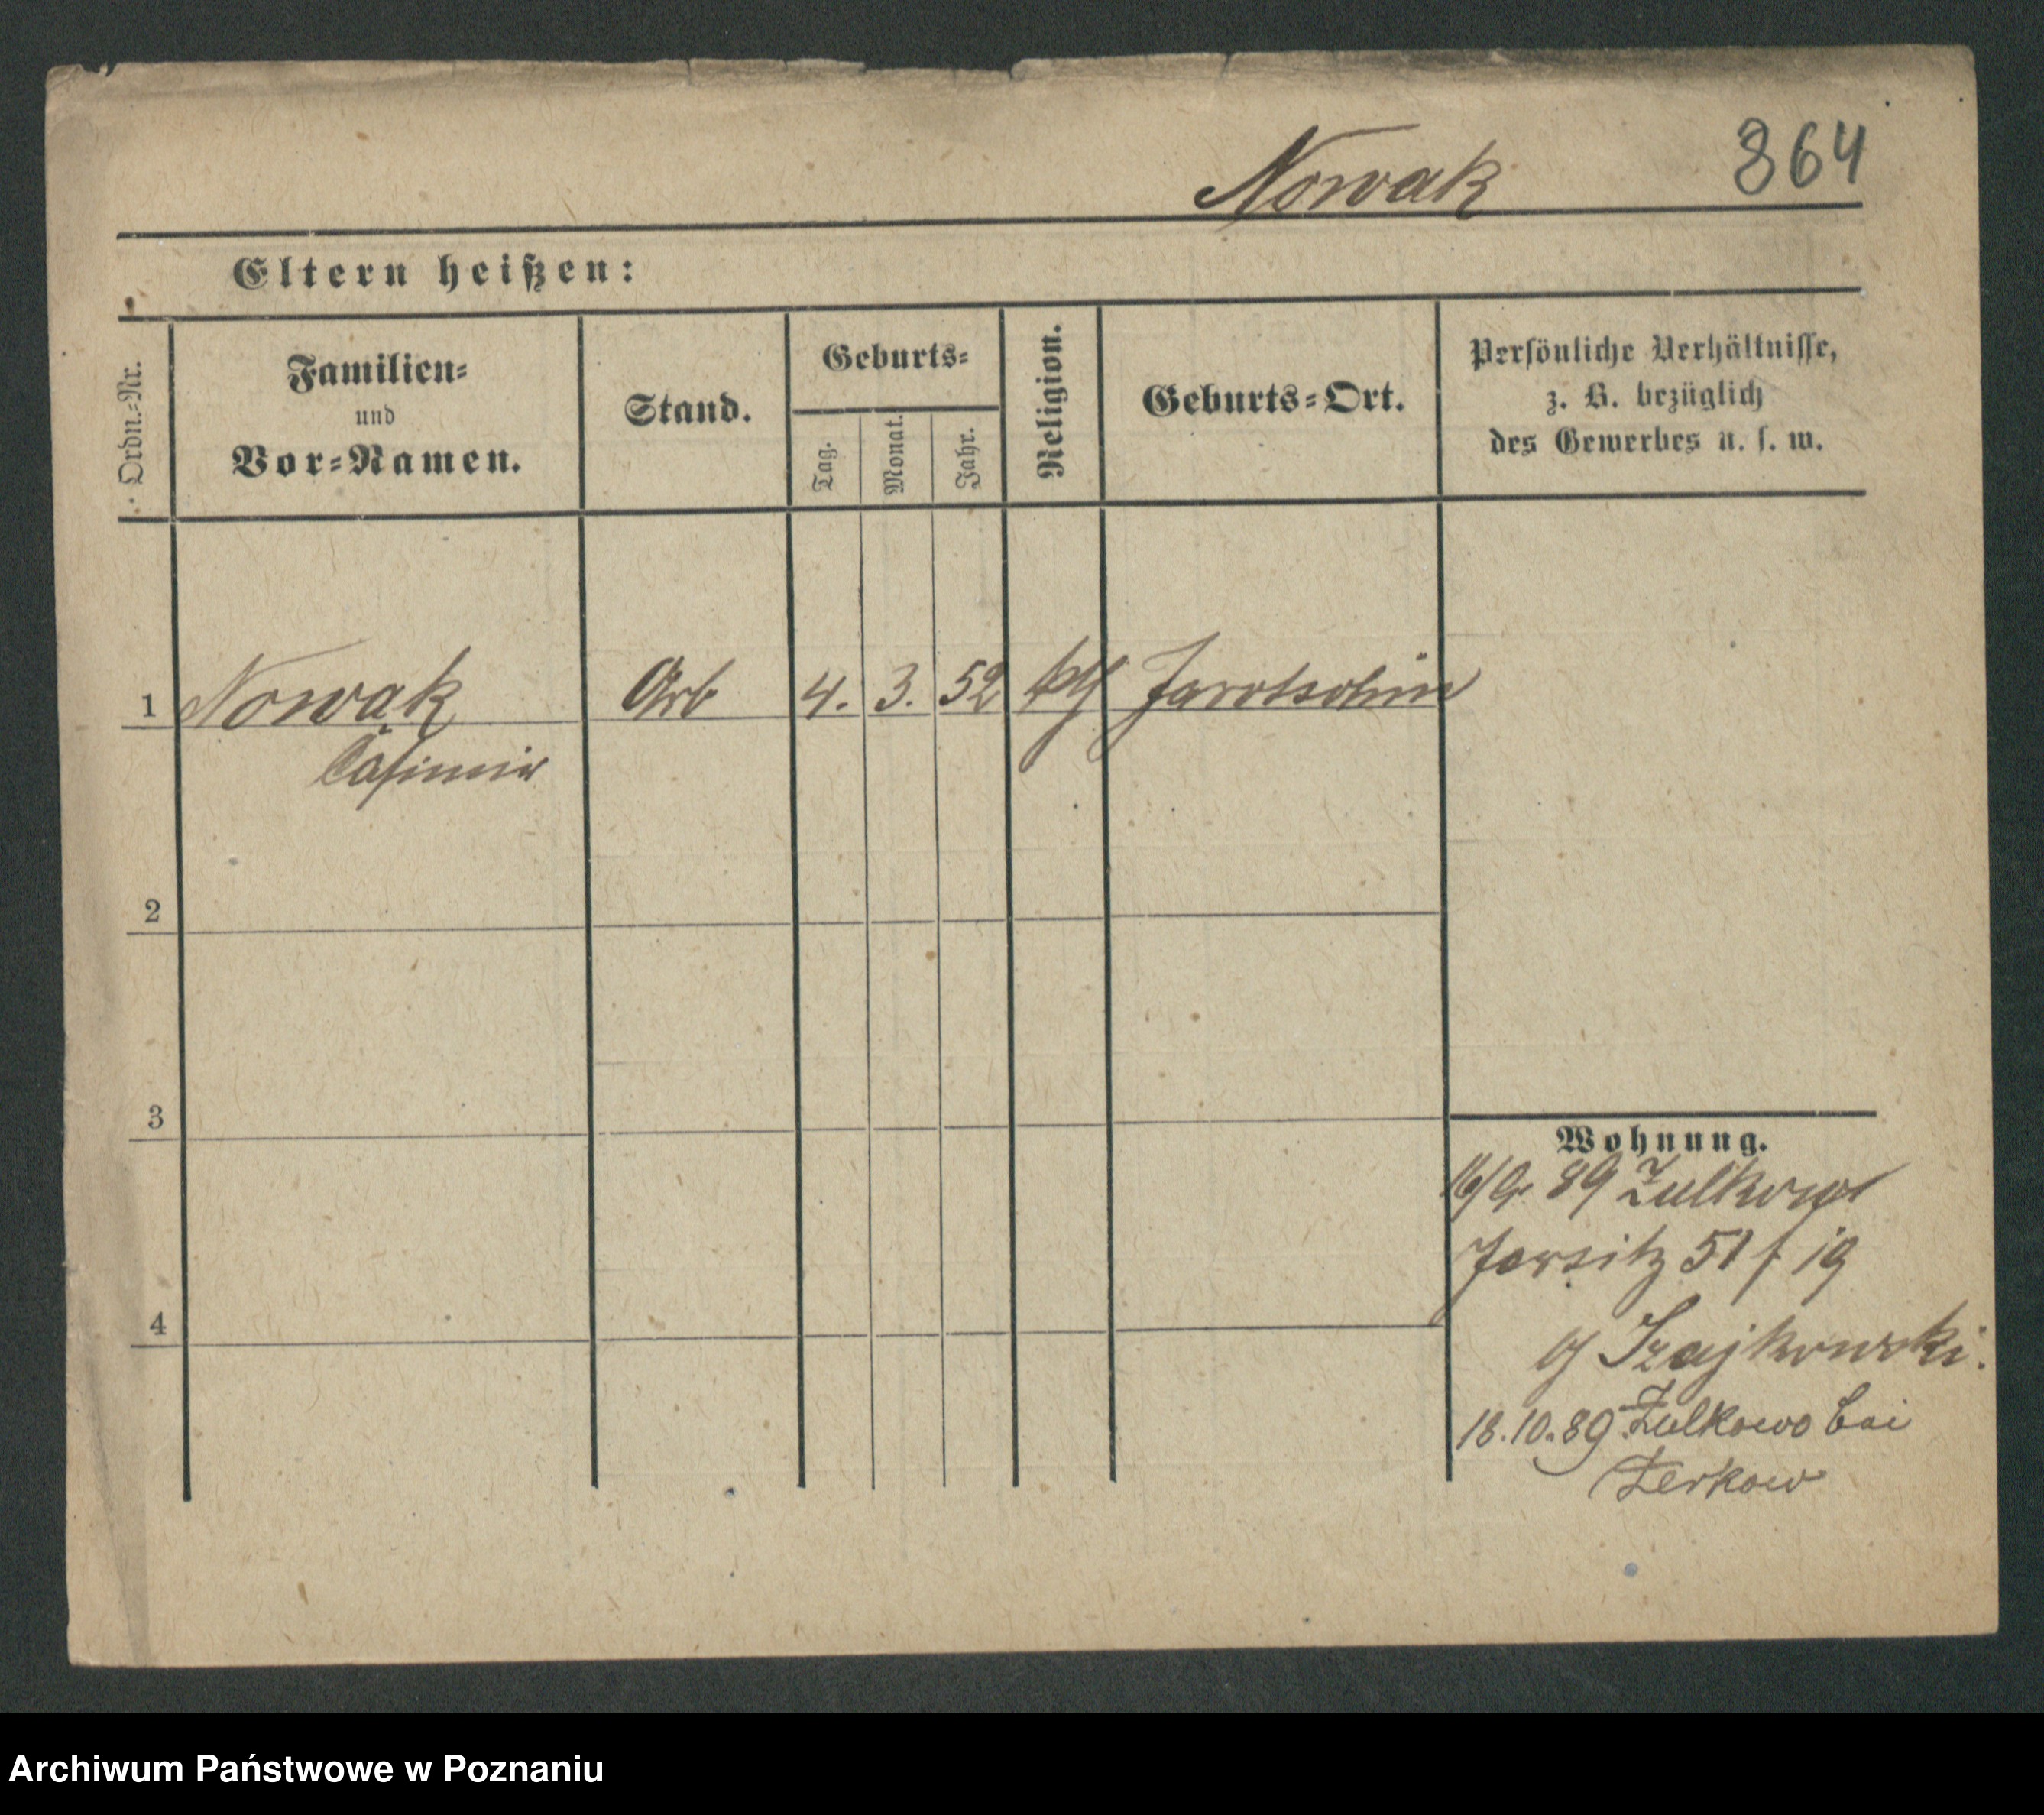 Nowak 364
Eltern heißen:
Ordn.-Nr.
Familien-
und
Vor-Namen.
Stand.
Geburts-
Tag.
Monat.
Jahr.
Religion.
Geburts-Ort.
Persönliche Verhältnisse,
z. B. bezüglich
des Gewerbes u. s. w.
1 Nowak Arb 4. 3. 52 kth Jarotschin
Casimir
2
3
4
Wohnung.
89 Zulkowo
Jersitz 51
Czajkowski.
18.10.89 Zulkowo bei
Zerkow
Archiwum Państwowe w Poznaniu